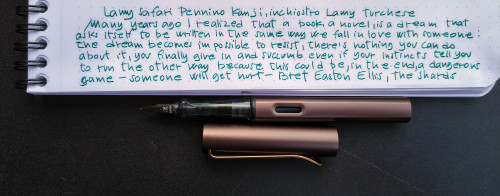 Lamy Safari Pennino Kanji, inchiostro Lamy Turchese
Many years ago I realized that a book, a novel, is a dream that
asks itself to be written in the same way we fall in love with someone:
the dream becomes impossible to resist, there's nothing you can do
about it, you finally give in and succumb even if your instincts tell you
to run the other way because this could be, in the end, a dangerous
game - someone will get hurt - Bret Easton Ellis, the shards